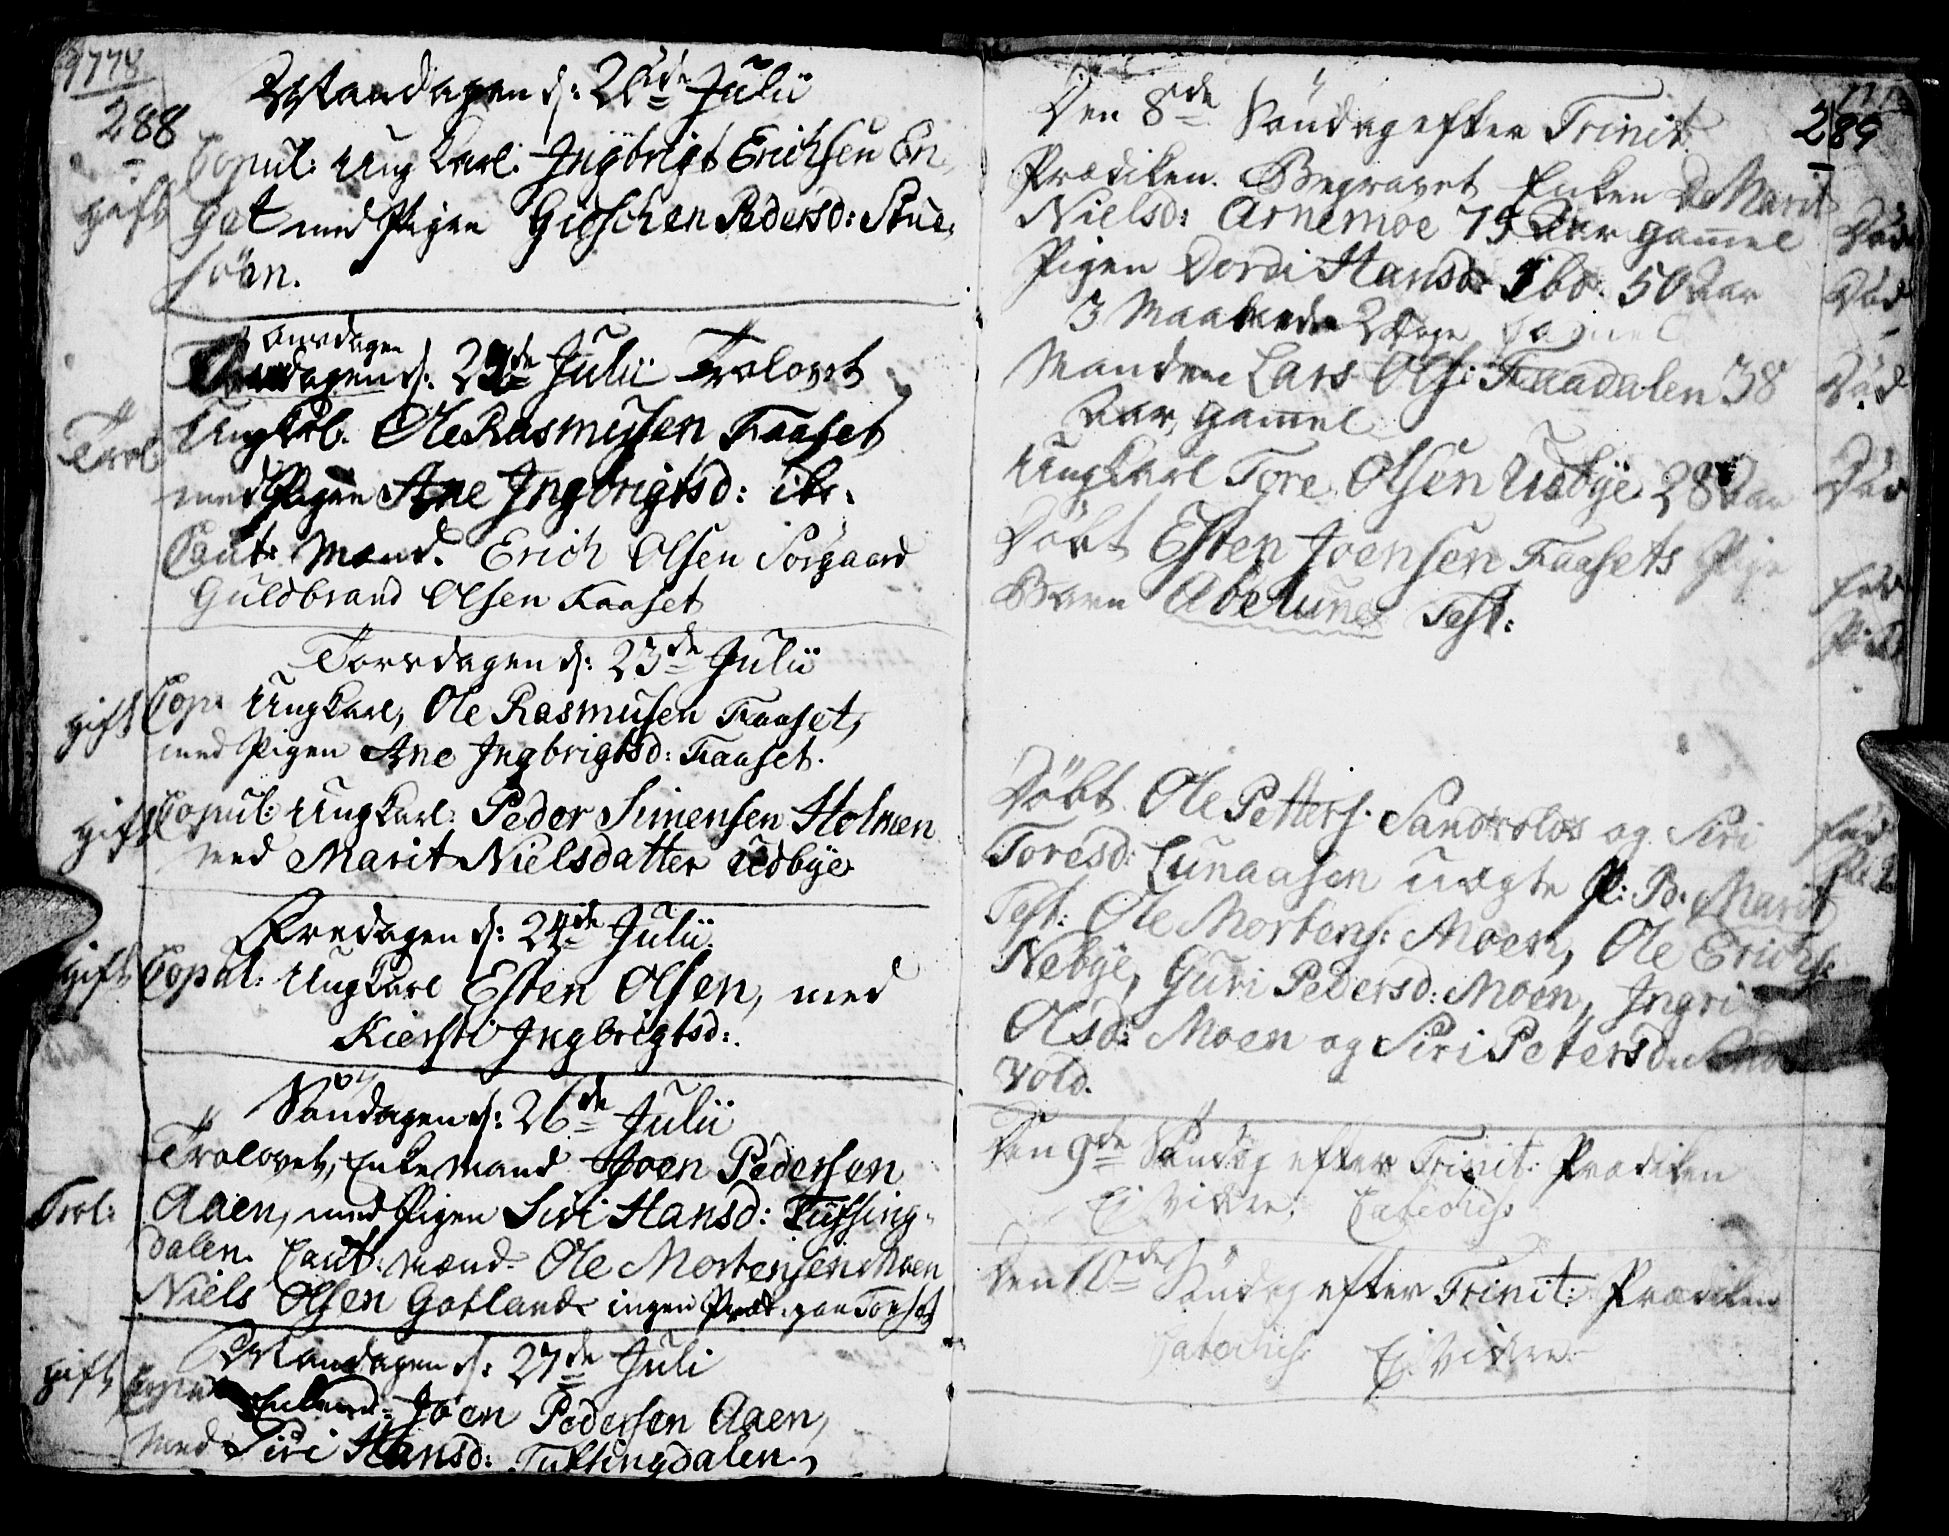 1778
288
Mandagen d: 20de Julii
gift Copul: Ung Karl: Ingbrigt Erichsen En
get med Pigen Gidschen Pedersd: Stue
söen.
Onsdagen
d: 22de Julii Trolovet
Trol Ungkrl. Ole Rasmusen Faaset
med Pigen Ane Ingbrigtsd: ibr.
Caut: Mænd. Erich Olsen Sörgaard
Guldbrand Olsen Faaset
Torsdagen d: 23de Julii
gift Cop: Ungkarl, Ole Rasmusen Faaset,
med Pigen Ane Ingbrigtsd: Faaset.
gift Copul: Ungkarl: Peder Simensen Holmen
med Marit Nielsdatter Udbye
Fredagen d: 24de Julii
gift Copul: Ungkarl Esten Olsen, med
Kiersti Ingbrigtsd:
Söndagen d: 26de Julii
Trolovet, Enkemand Joen Pedersen
Trol: Aaen, med Pigen Siri Hansd: Tuffsing-
dalen. Caut: Mænd. Ole Mortensen Moen
Niels Olsen Gotland ingen Præd: paa Tønset
Mandagen d: 27de Juli
gift Copul Enkem: Joen Pedersen Aaen,
med Siri Hansd: Tuffsingdalen.
289
Den 8de Söndag efter Trinit
Prædiken. Begravet Enken Marit
Nielsd: Arnemoe 75 Aar gamel Död
Pigen Dordi Hansd: ibd. 50 Aar Död
3 Maaneder 2 Dage gamel
Manden Lars Ols: Faadalen 38 Död
Aar gamel
Ungkarl Tore Olsen Udbye 28 Aar Död
Döbt Esten Joensen Faasets Pige
Barn Abelune Test:
Döbt Ole Petters. Sandvold og Siri
Toresd: Lunaasen uægte P: B. Marit
Test: Ole Mortens: Moen, Ole Erichs:
Nebye, Guri Pedersd: Moen, Ingri
Olsd: Moen og Siri Petersd:
vold.
Den 9de Söndag efter Trinit: Prædiken
Ej Videre. Catechis
Den 10de Söndag efter Trinit: Prædiken
Catechis: Ej Videre